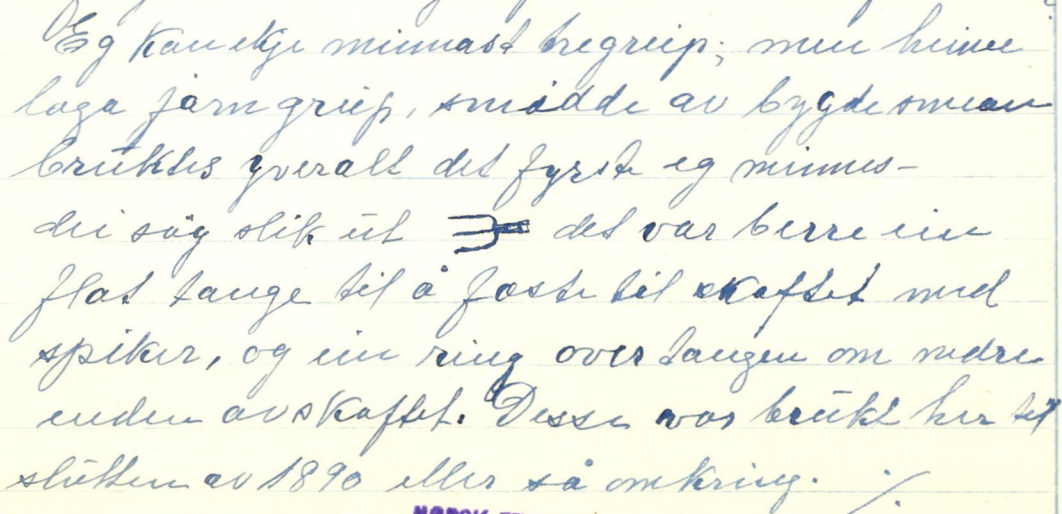 Eg kan ikje minnast tregreip; men heime
laga jarngreip, smidde av bygdesmean
bruktes yveralt det fyrste eg minnes-
dei såg slik ut det var berre ein
flat tange til å feste til skaftet med
spiker, og ein ring over tangen om nedre
enden av skaftet. Desse var brukt her til
slutten av 1890 eller så omkring. ./.
NORSK